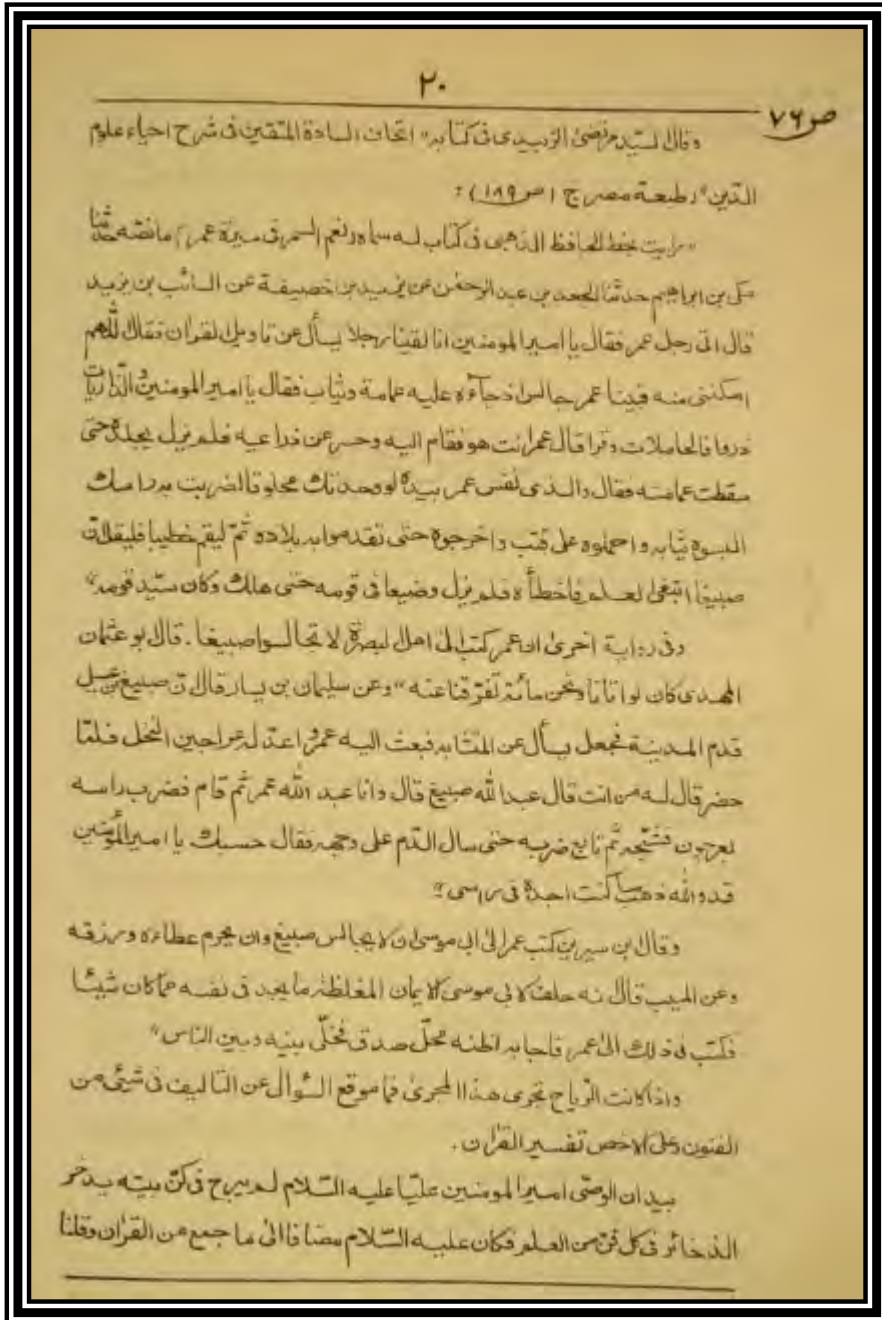 ٢٠
ص ٧٦
وقال السيد مرتضى الزبيدى فى كتابه " اتحاف السادة المتقين فى شرح احياء علوم
الدين " (طبعة مصر ج ١ ص ١٨٩) :
" رايت بخط الحافظ الذهبى فى كتاب له سماه نعم السمر فى سيرة عمر ما نصه حدثنا
مكى بن ابراهيم حدثنا الجعد بن عبد الرحمن عن يزيد بن خصيفة عن السائب بن يزيد
قال اتى رجل عمر فقال يا امير المومنين انا لقينا رجلا يسأل عن تاويل القران فقال اللهم
امكننى منه فبينا عمر جالس اذ جآءه عليه عمامة وثياب فقال يا امير المومنين والذاريات
ذروا فالحاملات وقرا قال عمر انت هو فقام اليه وحسر عن ذراعيه فلم يزل يجلده حتى
سقطت عمامته فقال والذى نفس عمر بيده لو وجدتك محلوقا لضربت به راسك
البسوه ثيابه واحملوه على قتب واخرجوه حتى تقدموا به بلاده ثم ليقم خطيبا فليقل ان
صبيغا ابتغى العلم فاخطأه فلم يزل وضيعا فى قومه حتى هلك وكان سيد قومه "
وفى رواية اخرى ان عمر كتب الى اهل البصرة لا تجالسوا صبيغا . قال ابو عثمان
المهدى كان لو اتانا ونحن مائة تفرقنا عنه " وعن سليمان بن يسار قال ان صبيغ بن عسل
قدم المدينة فجعل يسأل عن المتشابه فبعث اليه عمر واعد له عراجين النخل فلما
حضر قال له من انت قال عبد الله صبيغ قال وانا عبد الله عمر ثم قام فضرب راسه
بعرجون فشجه ثم تابع ضربه حتى سال الدم على وجهه فقال حسبك يا امير المؤمنين
قد والله ذهب ما كنت اجده فى راسى "
وقال ابن سيرين كتب عمر الى ابى موسى ان لا يجالس صبيغ وان يحرم عطاءه ورزقه
وعن المسيب قال انه حلف لابى موسى الايمان المغلظة ما يجد فى نفسه مما كان شيئا
فكتب فى ذلك الى عمر فاجابه اظنه محل صدق فخلى بينه وبين الناس "
واذا كانت الرياح تجرى هذا المجرى فما موقع السؤال عن التاليف فى شيئ من
الفنون وعلى الاخص تفسير القران .
بيد ان الوصى امير المومنين عليا عليه السلام لم يبرح فى كن بيته يدخر
الذخائر فى كل فن من العلم فكان عليه السلام مضافا الى ما جمع من القران وقلنا